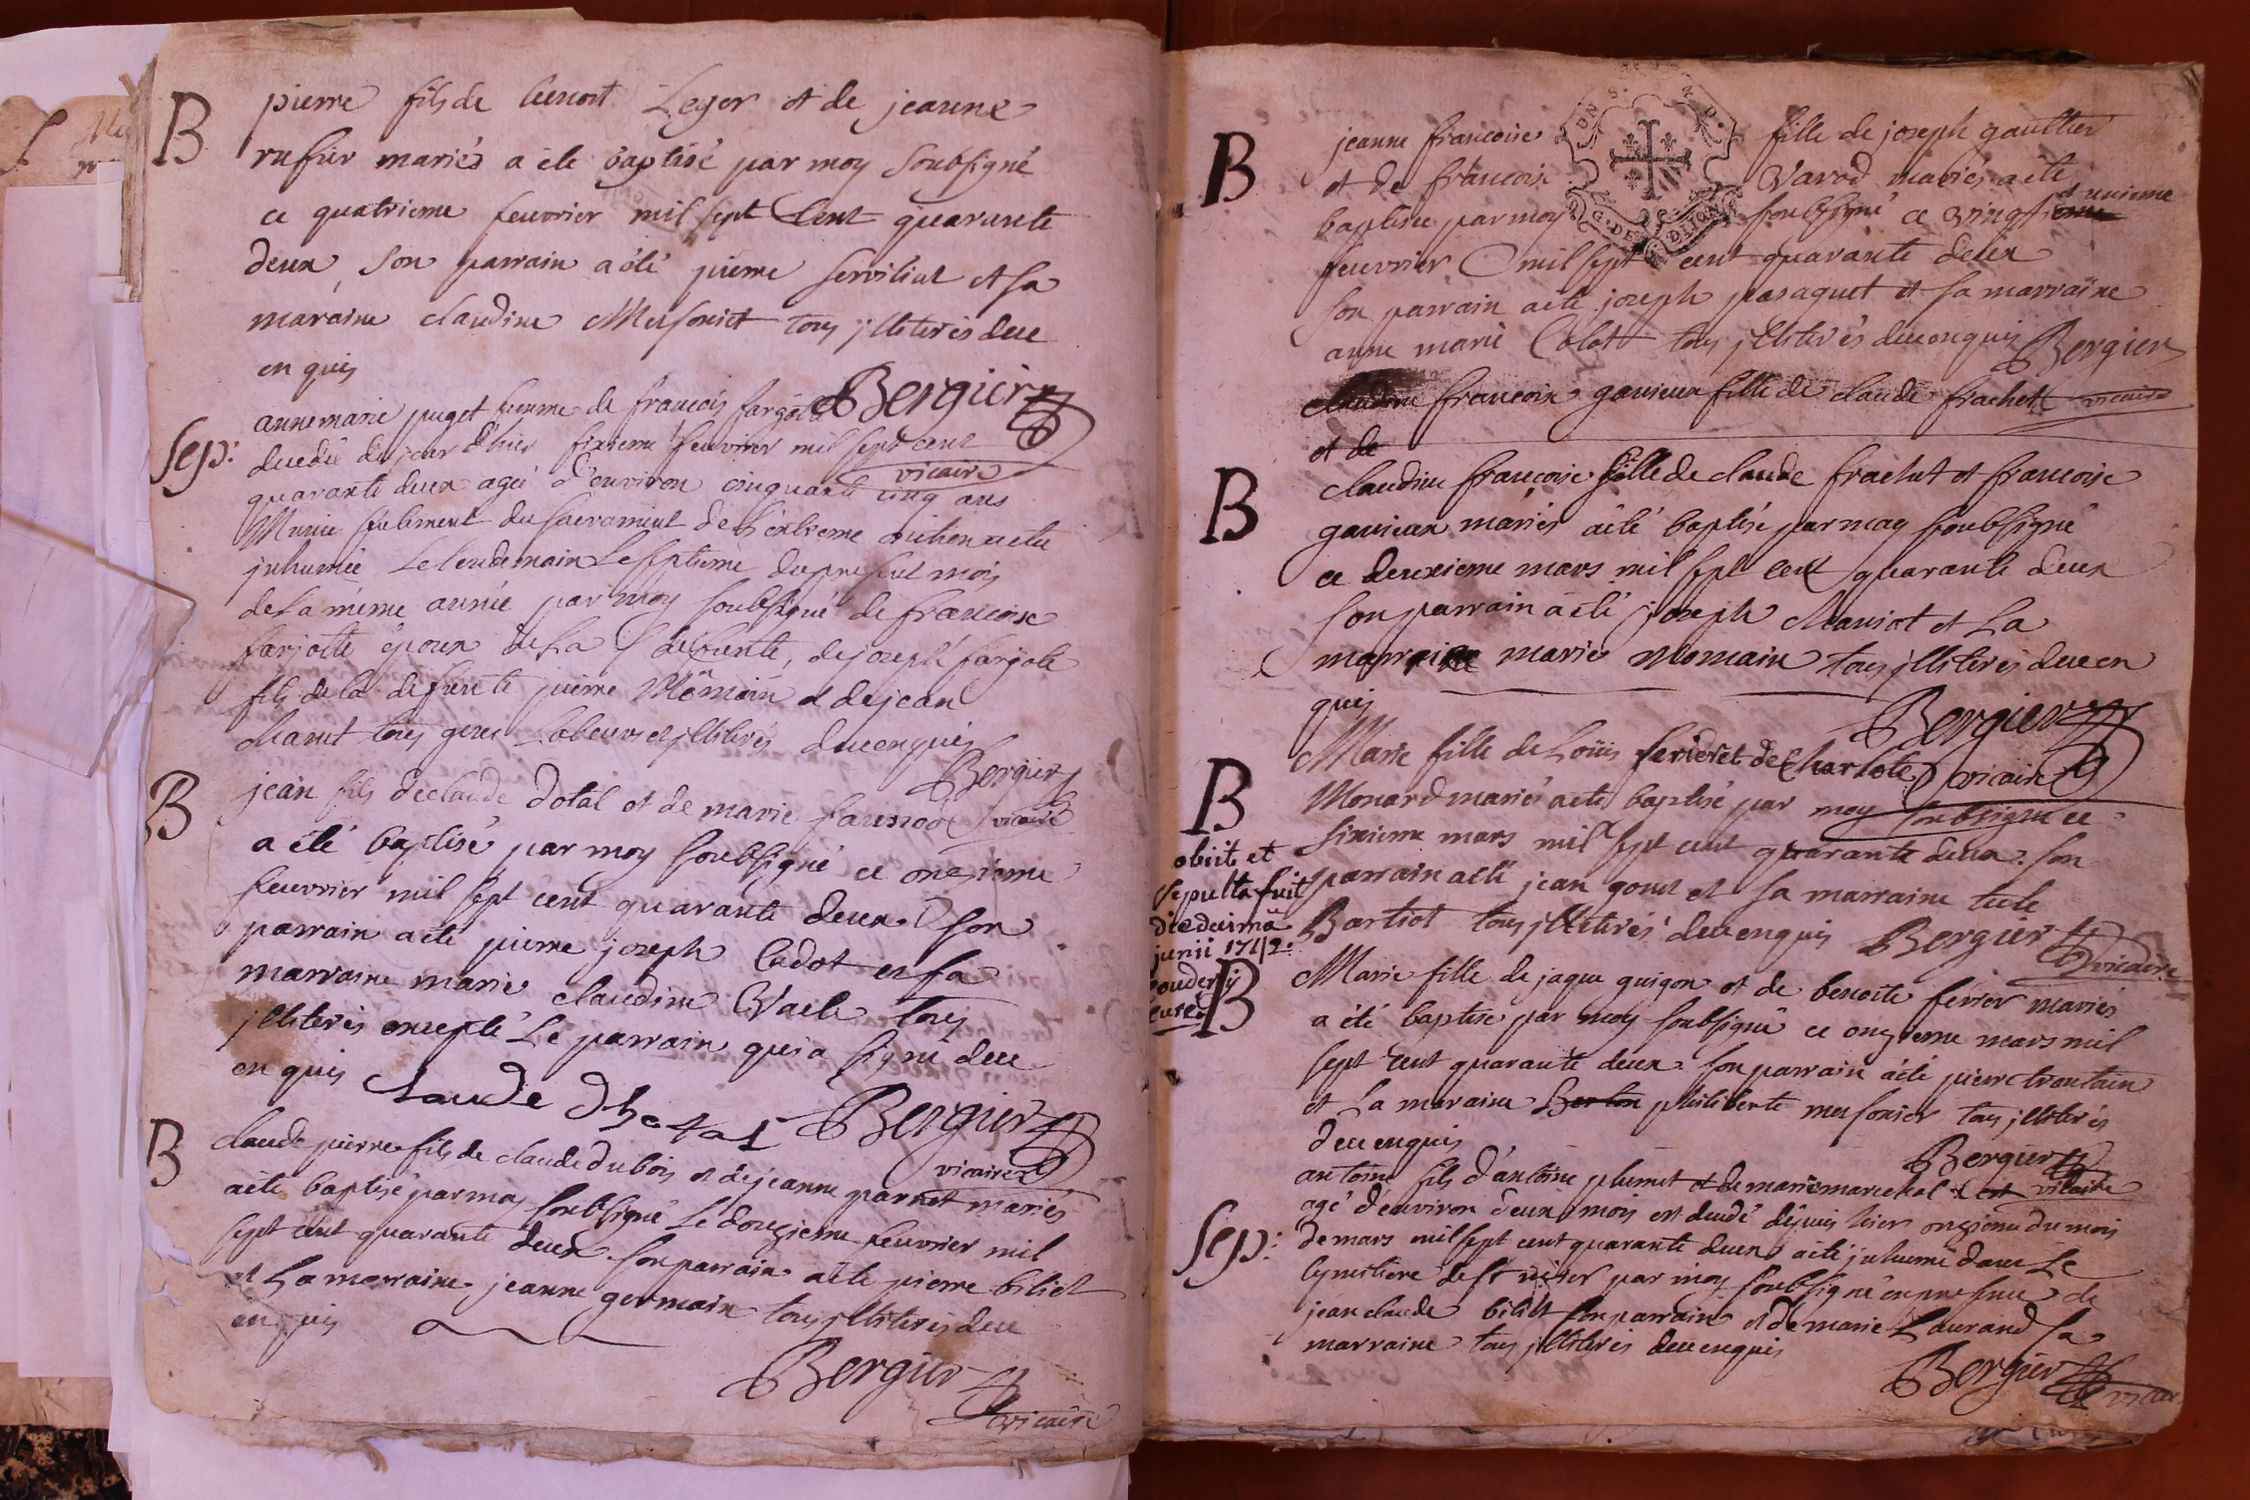 B
pierre fils de benoit Leger et de jeanne
rufier mariés a éte baptisé par moy soubsigné
ce quatrieme feuvrier mil sept Cent quarante
deux, son parrain a èté pierre serviliat et sa
maraine claudine Musoniet tous jllitérés deue
en quis
Bergier
vicaire
Sep:
anne marie puget femme de francois farjote
duedé du jour d'hier sixieme feuvrier mil sept cent
quarante deux ageé d'environ cinquante cinq ans
Munie seulement du sacrament de l'extreme onction a éte
jnhumée Le lendemain Le septieme du present mois
de La même année par moy soubsigné de francoise
farjotte époux de La defunte, de joseph farjote
fils de la defunte pierre Mômain et de jean
Manet tous gens Labeureurs jllitérés deue enquis
Bergier
vicaire
B
jean fils de claude dotal et de marie faunod
a èté baptisé par moy soubsigné ce onzieme
feuvrier mil sept cent quarante deux son
parrain a éte pierre joseph Cadot et sa
marraine marie claudine Vaele tous
jllitérés excepté Le parrain qui a signé deue
en quis
Claude dotal
Bergier
vicaire
B
Claude pierre fils de claude dubois et de jeanne parnet mariés
a éte baptisé par moy soubsigné Le douzieme feuvrier mil
sept cent quarante deux. son parrain a éte pierre biliet
et La marraine jeanne germain tous jllitérés deue
en quis
Bergier
vicaire
B
jeanne francoise fille de joseph gaultier
et de francoise Varod mariés a éte
baptisée par moy soubsigné ce vingt unieme
feuvrier mil sept cent quarante deux
son parrain a éte joseph pasaquet et sa marraine
anne marie Colot tous jllitérés deue enquis
Bergier
vicaire
claudine francoise gauieux fille de claude frachet
et de
B
claudine francoise fille de claude frachet et francoise
gauieux mariés a èté baptisé par moy soubsigné
ce deuxieme mars mil sept cent quarante deux
son parrain a èté joseph Maniot et La
marraine marie Momain tous jllitérés deue en
quis
Bergier
vicaire
B
Marie fille de Loüis ferier et de Charlote
Monard mariés a éte baptisé par moy soubsigné ce
sixieme mars mil sept cent quarante deux. son
parrain a èté jean gonet et sa marraine
Bartiot tous jllitérés deue enquis
Bergier
vicaire
obiit et
sepulta fuit
die decima
junii 1742.
B
Marie fille de jaque guigon et de benoite ferier mariés
a été baptisé par moy soubsigné ce onzieme mars mil
sept cent quarante deux. son parrain a èté pierre trontain
et La maraine Berton philiberte musonier tous jllitérés
deue enquis
Bergier
vicaire
Sep:
antoine fils d'antoine plumet et de marie marechal est
agé d'environ deux mois est deudé depuis hier onzieme du mois
de mars mil sept cent quarante deux a èté jnhumé dans Le
cymetiere de st par moy soubsigné en presence de
jean claude biliet son parrain et de marie Laurand sa
marraine tous jllitérés deue enquis
Bergier
vicaire